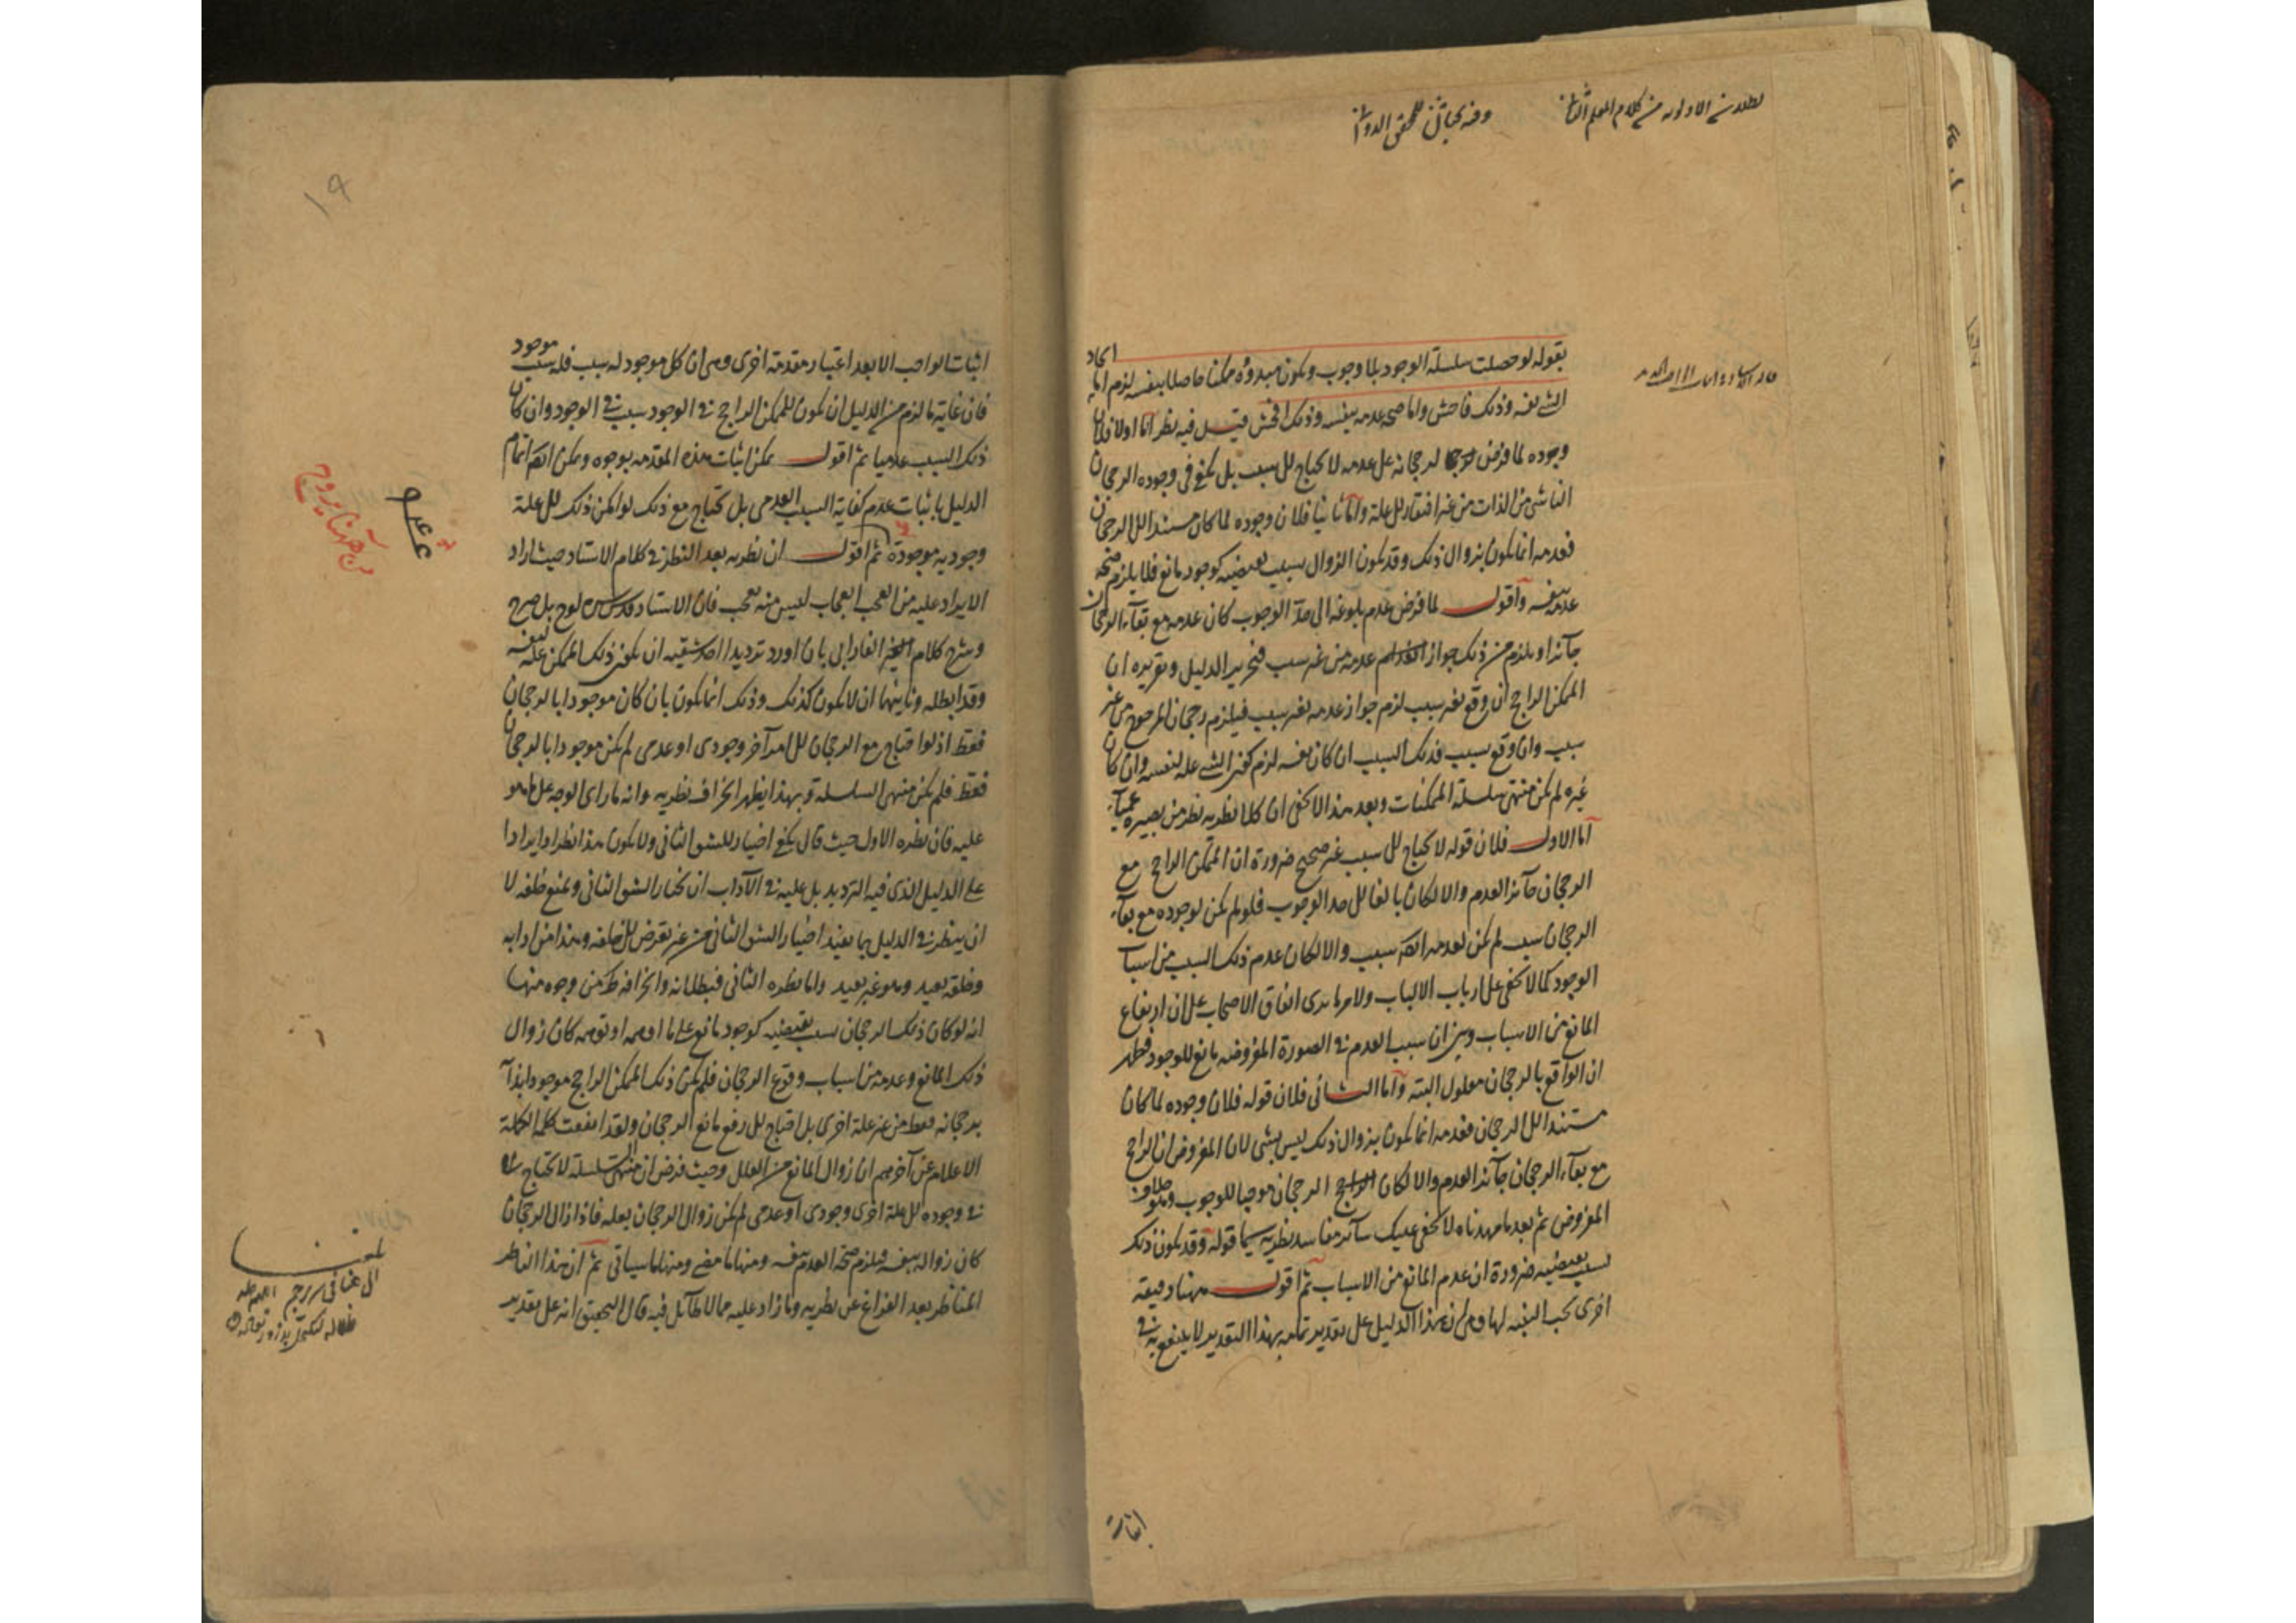 بقوله لو حصلت سلسلة الوجود بلا وجوب ويكون مبدؤه ممكنا حاصلا بنفسه لزم اما ايجاد
الشئ نفسه وذلك فاحش واما صحة عدمه بنفسه وذلك افحش قيل فيه نظر اما اولا فلان
وجوده لما فرض لرجحانه على عدمه لا يحتاج الى سبب بل يكفى فى وجوده الرجحان
الناشى من الذات من غير افتقار الى علة واما ثانيا فلان وجوده لما كان مستندا الى الرجحان
فعدمه انما يكون بزوال ذلك وقد يكون الزوال بسبب يقتضيه كوجود مانع فلا يلزم صحة
عدمه بنفسه واقول لما فرض عدم بلوغه الى حد الوجوب كان عدمه مع بقاء الرجحان
جائزا ويلزم من ذلك جواز عدمه من غير سبب فتحرير الدليل وتقريره ان
الممكن الراجح ان وقع بغير سبب لزم جواز عدمه بغير سبب فيلزم رجحان المرجوح من غير
سبب وان وقع بسبب فذلك السبب ان كان نفسه لزم كون الشئ علة لنفسه وان كان
غيره لم يكن منتهى سلسلة الممكنات وبعد هذا لا يخفى ان كلا نظريه نظر من بصيرة عمياء
اما الاول فلان قوله لا يحتاج الى سبب غير صحيح ضرورة ان الممكن الراجح مع
الرجحان جائز العدم والا لكان بالغا الى حد الوجوب فلو لم يكن لوجوده مع بقاء
الرجحان سبب لم يكن لعدمه ايضا سبب والا لكان عدم ذلك السبب من اسباب
الوجود كما لا يخفى على ارباب الالباب ولامر ما ترى اتفاق الاصحاب على ان ارتفاع
المانع من الاسباب وبين ان سبب العدم فى الصورة المفروضة مانع للوجود فظهر
ان الواقع بالرجحان معلول البتة واما الثانى فلان قوله فلان وجوده لما كان
مستندا الى الرجحان فعدمه انما يكون بزوال ذلك ليس بشى لان المفروض ان الراجح
مع بقاء الرجحان جائز العدم والا لكان الرجحان موجبا للوجوب وهو خلاف
المفروض ثم بعد ما مهدناه لا يخفى عليك سائر مفاسد نظريه سيما قوله وقد يكون ذلك
بسبب يقتضيه ضرورة ان عدم المانع من الاسباب ثم اقول ههنا دقيقة
اخرى يجب التنبه لها وهى ان هذا الدليل على تقدير تمامه بهذا التقدير لا ينفع به فى
اثبات
١٩
اثبات الواجب الا بعد اعتبار مقدمة اخرى وهى ان كل موجود له سبب فله سبب موجود
فان غاية ما لزم من الدليل ان يكون للممكن الراجح فى الوجود سبب فى الوجود وان كان
ذلك السبب عدميا ثم اقول يمكن اثبات هذه المقدمة بوجوه ويمكن ايضا اتمام
الدليل باثبات عدم كفاية السبب العدمى بل يحتاج مع ذلك لو امكن ذلك الى علة
وجودية موجودة ثم اقول ان نظريه بعد النظر فى كلام الاستاد حيث اراد
الايراد عليه من العجب العجاب ليس منه بعجب فان الاستاد قدس سره لوح بل صرح
وشرح كلام الفارابى بان اورد ترديدا احد شقيه ان يكون ذلك الممكن علة لنفسه
وقد ابطله وثانيهما ان لا يكون كذلك وذلك انما يكون بان كان موجودا بالرجحان
فقط اذ لو احتاج مع الرجحان الى امر آخر وجودى او عدمى لم يكن موجودا بالرجحان
فقط فلم يكن منتهى السلسلة وبهذا يظهر انحراف نظريه وانه ما راى الوجه على ما هو
عليه فان نظره الاول حيث قال يكفى اختيار للشق الثانى ولا يكون هذا نظرا وايرادا
على الدليل الذى فيه الترديد بل عليه فى الآداب ان يختار الشق الثانى ويمنع خلفه لا
ان ينظر فى الدليل بما يفيد اختيار الشق الثانى من غير تعرض الى خلفه وهذا من ادابه
وخلقه بعيد وهو غير بعيد واما نظره الثانى فبطلانه وانحرافه من وجوه منها
انه لو كان ذلك الرجحان بسبب يقتضيه كوجود مانع على ما اوهمه او توهمه كان زوال
ذلك المانع وعدمه من اسباب وقوع الرجحان فلم يكن ذلك الممكن الراجح موجودا بذاته
برجحانه فقط من غير علة اخرى بل احتاج الى رفع مانع الرجحان ولقد اتفقت كلمة الكملة
الاعلام عن آخرهم ان زوال المانع من العلل وحيث فرض انه منتهى السلسلة لا يحتاج
فى وجوده الى علة اخرى وجودى او عدمى لم يكن زوال الرجحان بعلة فاذا زال الرجحان
كان زواله بنفسه فيلزم صحة العدم بنفسه ومنها ما مضى ومنها ما سياتى ثم ان هذا الناظر
المناظر بعد الفراغ عن نظريه وما زاد عليه مما لا طائل فيه قال التحقيق انه على تقدير